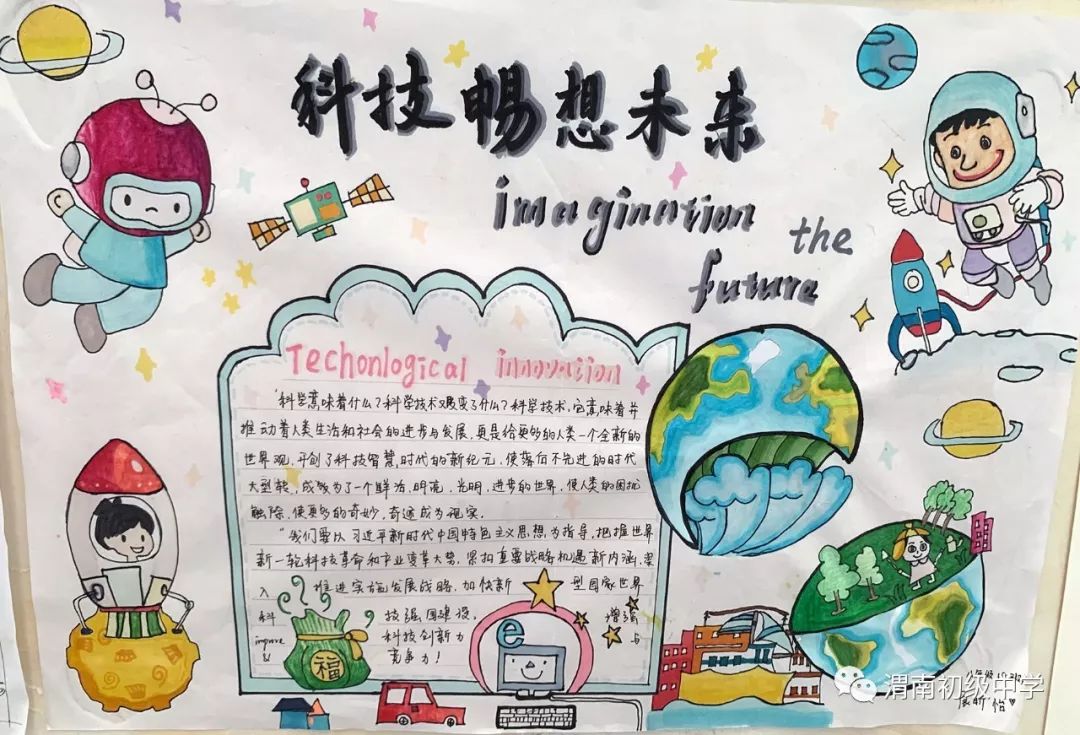 科技畅想未来
imagination
the
future
Techonlogical innovation
"科学意味着什么?科学技术又改变了什么?科学技术,它意味着并
推动着人类生活和社会的进步与发展,更是给更多的人类一个全新的
世界观,开创了科技智慧时代的新纪元,使落后不先进的时代
大型转,成为了一个鲜活、明亮、光明、进步的世界,使人类的困扰
触除,使更多的奇妙,奇迹成为现实.
"我们要以习近平新时代中国特色主义思想为指导,把握世界
新一轮科技革命和产业变革大势,紧扣重要战略机遇新内涵,深
入 推进实施发展战略,加快新 型国家世界
科 技强国建设, 增强
improve 科技创新力 与
& 竞争力!
福
e
渭南初级中学